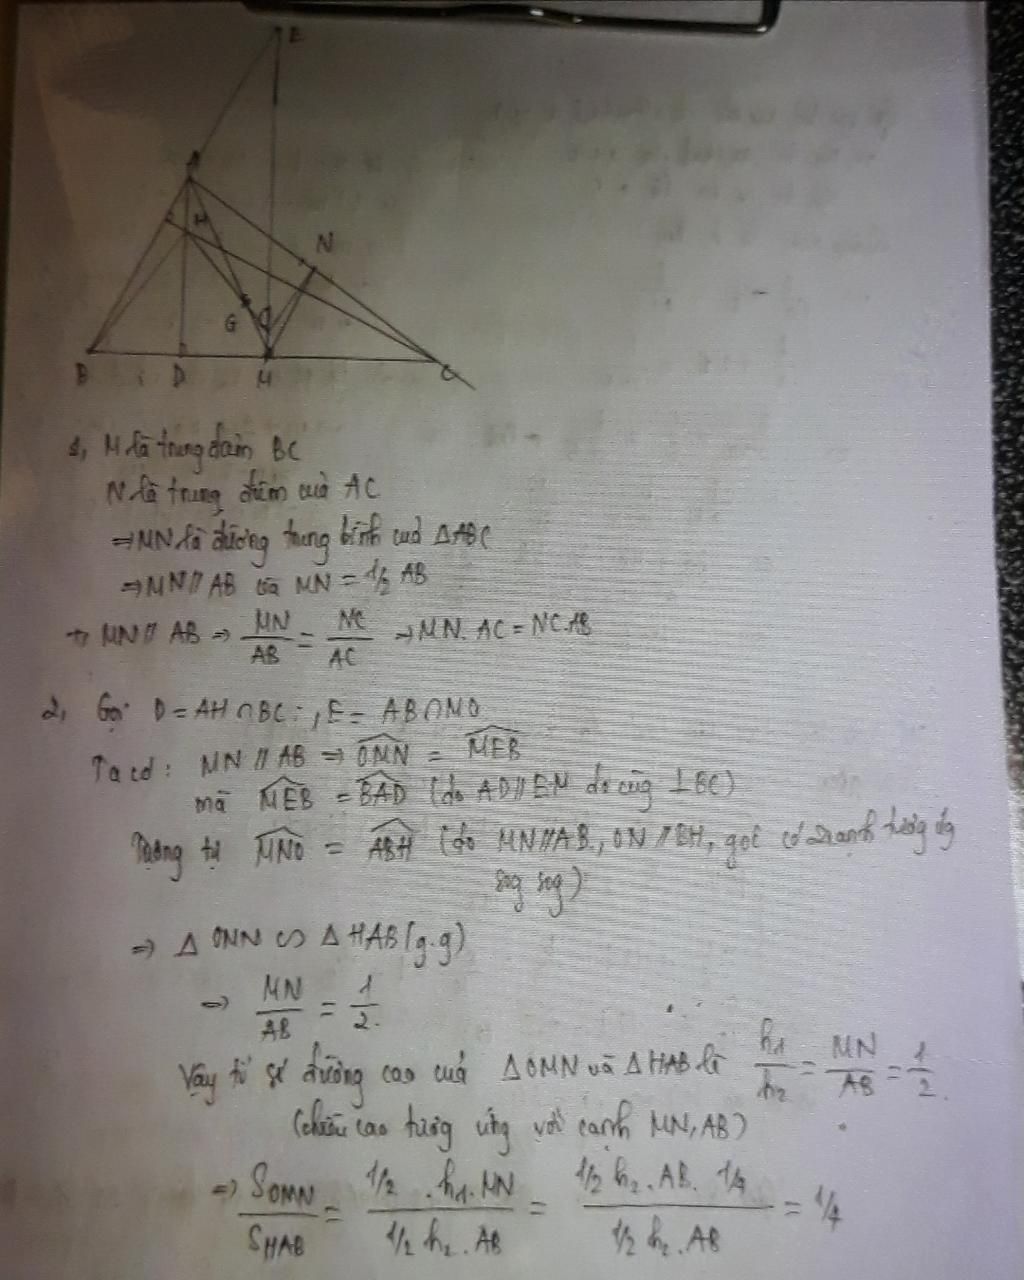 E
A
H
N
G
O
B D M C
1, M là trung điểm BC
N là trung điểm của AC
⇒ MN là đường trung bình của △ABC
⇒ MN // AB và MN = 1/2 AB
+, MN // AB ⇒ MN/AB = NC/AC ⇒ MN. AC = NC.AB
2, Gọi D = AH ∩ BC ; E = AB ∩ MO
Ta có: MN // AB ⇒ \widehat{OMN} = \widehat{MEB}
mà \widehat{MEB} = \widehat{BAD} (do AD // EM do cùng ⊥ BC)
Tương tự \widehat{MNO} = \widehat{ABH} (do MN // AB, ON // BH, góc có cạnh tương ứg
sog sog)
⇒ △ OMN ∽ △ HAB (g.g)
⇒ MN/AB = 1/2.
Vậy tỉ số đường cao của △OMN và △HAB là h1/h2 = MN/AB = 1/2.
(chiều cao tương ứng với cạnh MN, AB)
⇒ SOMN/SHAB = 1/2 . h1. MN / 1/2 h2 . AB = 1/2 h2 . AB. 1/4 / 1/2 h2 . AB = 1/4